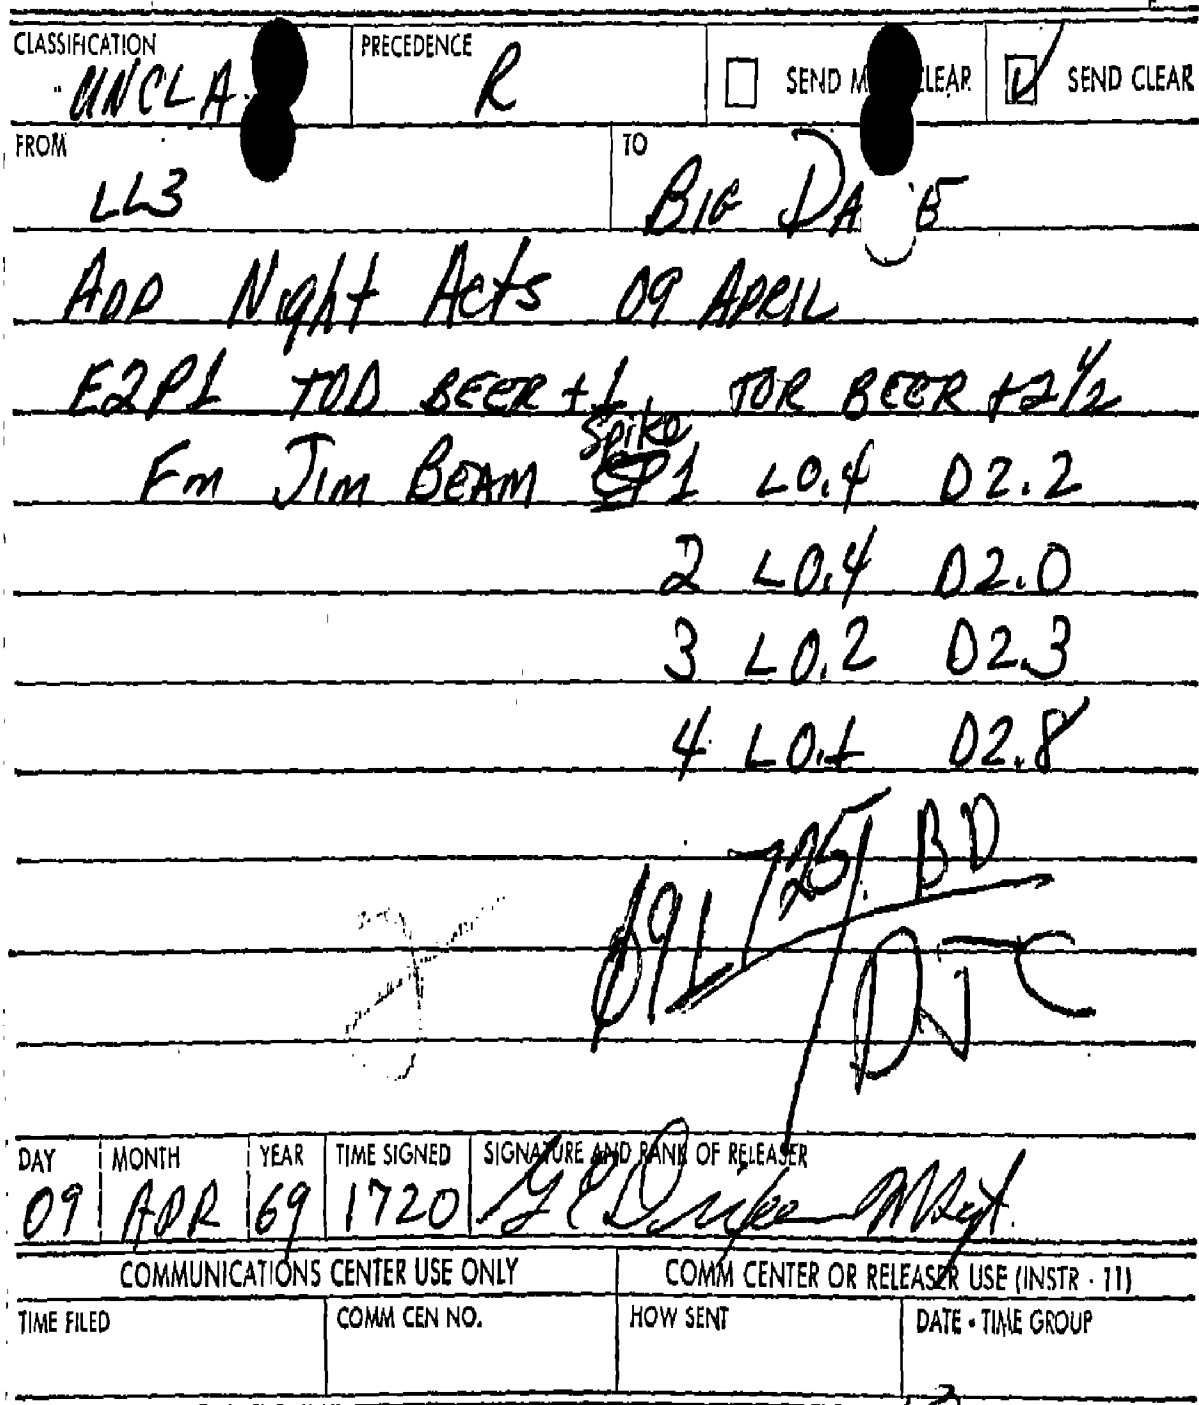 CLASSIFICATION PRECEDENCE
UNCLA R SEND CLEAR SEND CLEAR
FROM TO
LL3 BIG DAVE
ADD Night Acts 09 APRIL
E2P1 TOD BEER +1 TOR BEER +2 1/2
Spike
Fm JIM BEAM 1 L0.4 D2.2
2 L0.4 D2.0
3 L0.2 D2.3
4 L0.1 D2.8
091725 BD
DJC
DAY MONTH YEAR TIME SIGNED SIGNATURE AND RANK OF RELEASER
09 APR 69 1720 MSgt.
COMMUNICATIONS CENTER USE ONLY COMM CENTER OR RELEASER USE (INSTR - 11)
TIME FILED COMM CEN NO. HOW SENT DATE - TIME GROUP